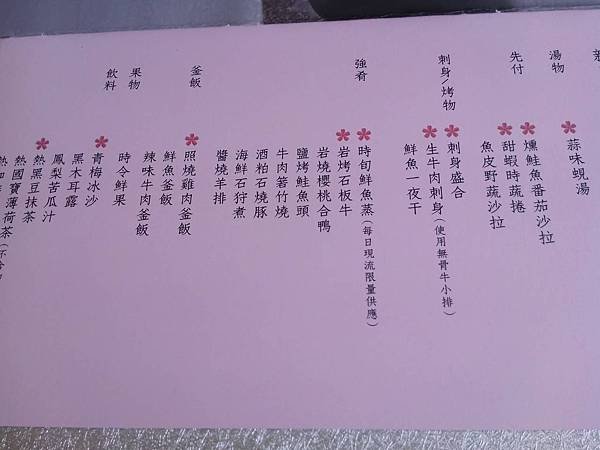 湯物
蒜味蜆湯
先付
燻鮭魚番茄沙拉
甜蝦時蔬捲
魚皮野蔬沙拉
刺身/烤物
刺身盛合
生牛肉刺身(使用無骨牛小排)
鮮魚一夜干
強肴
時旬鮮魚蒸(每日現流限量供應)
岩烤石板牛
岩燒櫻桃合鴨
鹽烤鮭魚頭
牛肉箬竹燒
酒粕石燒豚
海鮮石狩煮
醬燒羊排
釜飯
照燒雞肉釜飯
鮮魚釜飯
辣味牛肉釜飯
果物
時令鮮果
飲料
青梅冰沙
黑木耳露
鳳梨苦瓜汁
熱黑豆抹茶
熱國寶薄荷茶